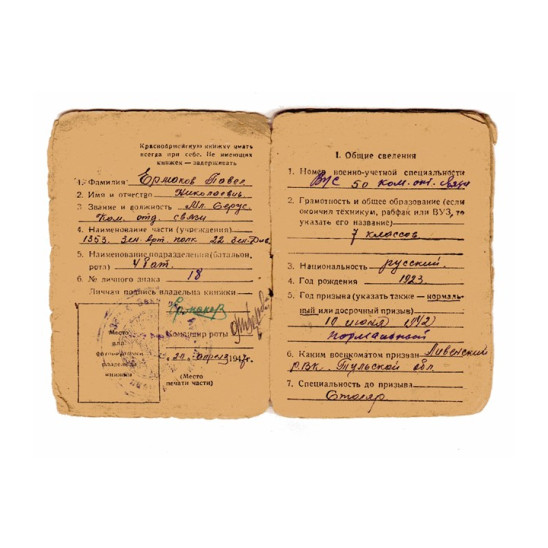 Красноармейскую книжку иметь
всегда при себе. Не имеющих
книжек — задерживать
1. Фамилия Ермаков Павел
2. Имя и отчество Николаевич
3. Звание и должность Мл. Серж
Ком. отд. связи
4. Наименование части (учреждения)
1363. Зен. Арт. полк 22 Зен. Див
5. Наименование подразделения (батальон,
рота) 4 бат.
6. № личного знака 18
Личная подпись владельца книжки
Ермаков
Командир роты
Место
для
фотографии
владельца
книжки
20 апреля 1947г.
(Место
печати части)
I. Общие сведения
1. Номер военно-учетной специальности
ВУС 50 Ком. от. связи
2. Грамотность и общее образование (если
окончил техникум, рабфак или ВУЗ, то
указать его название)
7 классов
3. Национальность русский
4. Год рождения 1923
5. Год призыва (указать также — нормаль-
ный или досрочный призыв)
10 июня 1942
нормальный
6. Каким военкоматом призван Ливенский
РВК. Тульской обл.
7. Специальность до призыва
Столяр